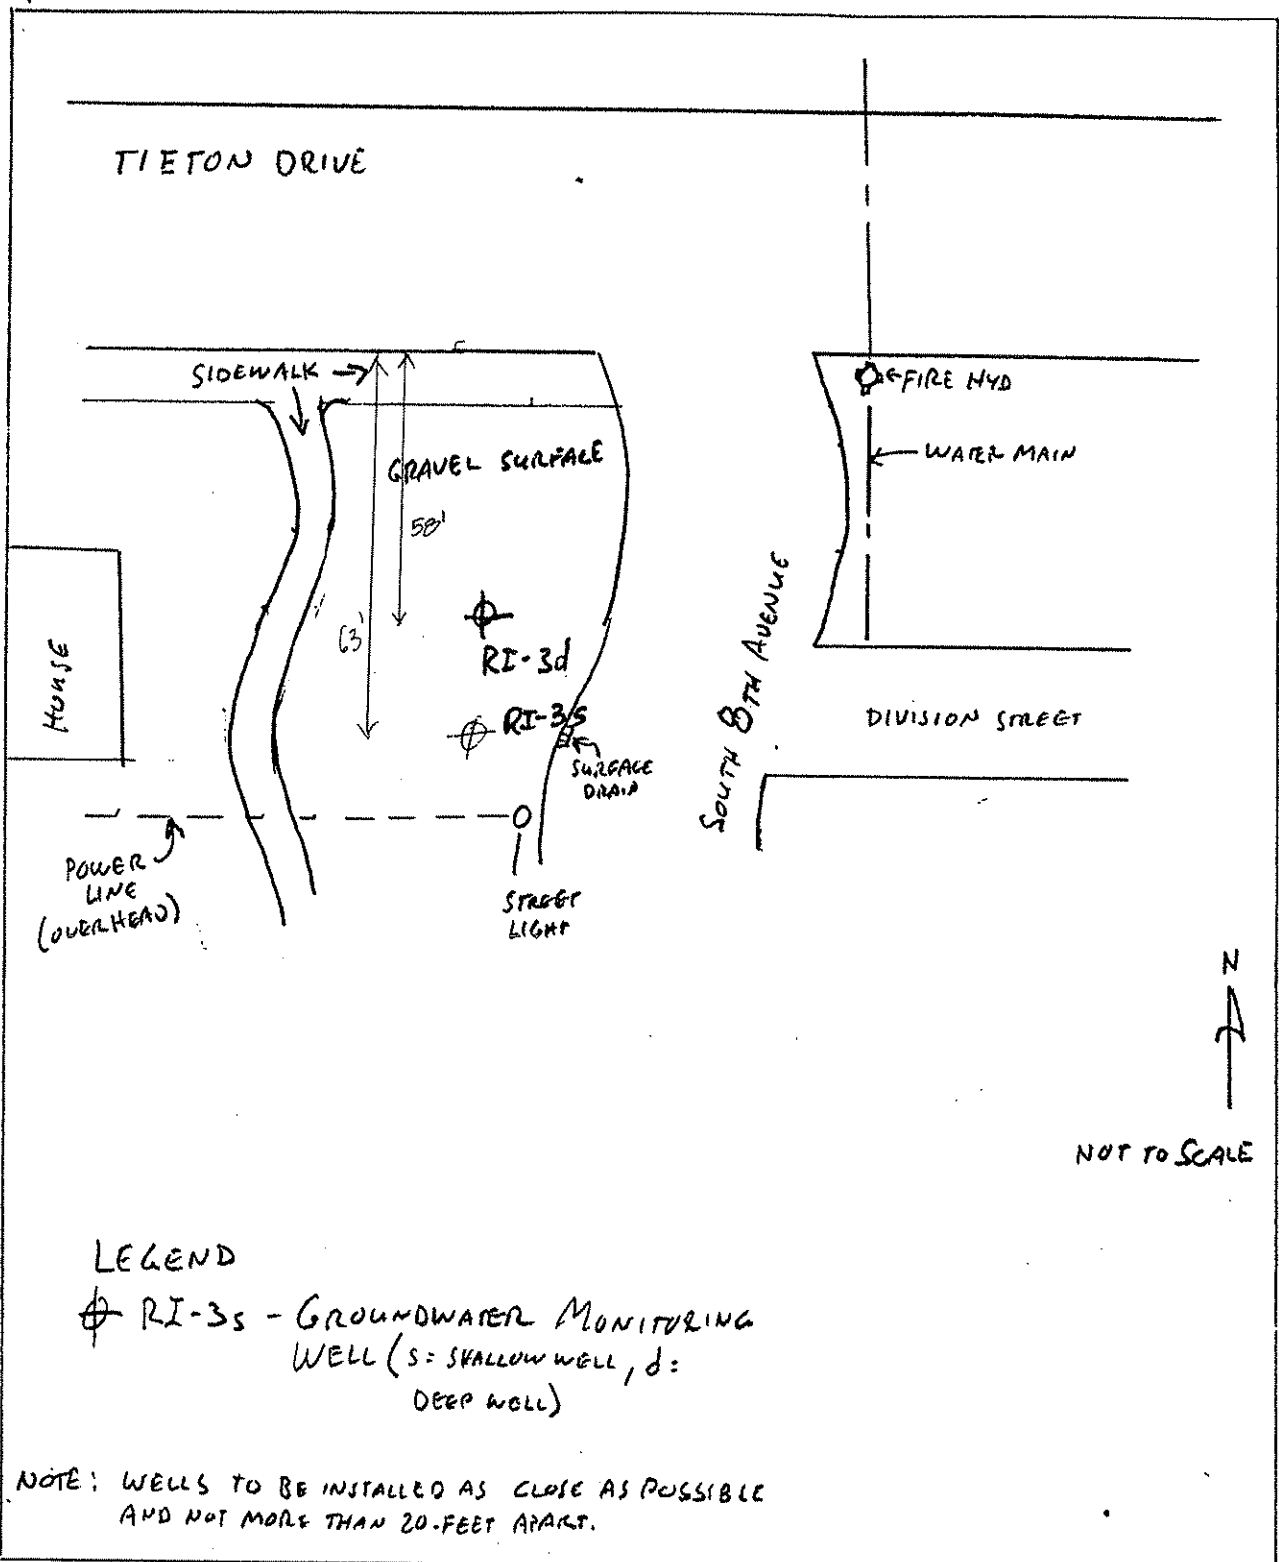 TIETON DRIVE
SIDEWALK
FIRE HYD
WATER MAIN
GRAVEL SURFACE
58'
63'
RI-3d
RI-3s
SURFACE
DRAIN
HOUSE
SOUTH 8TH AVENUE
DIVISION STREET
POWER
LINE
(OVERHEAD)
STREET
LIGHT
N
NOT TO SCALE
LEGEND
RI-3s - GROUNDWATER MONITORING
WELL (s = SHALLOW WELL, d =
DEEP WELL)
NOTE: WELLS TO BE INSTALLED AS CLOSE AS POSSIBLE
AND NOT MORE THAN 20-FEET APART.